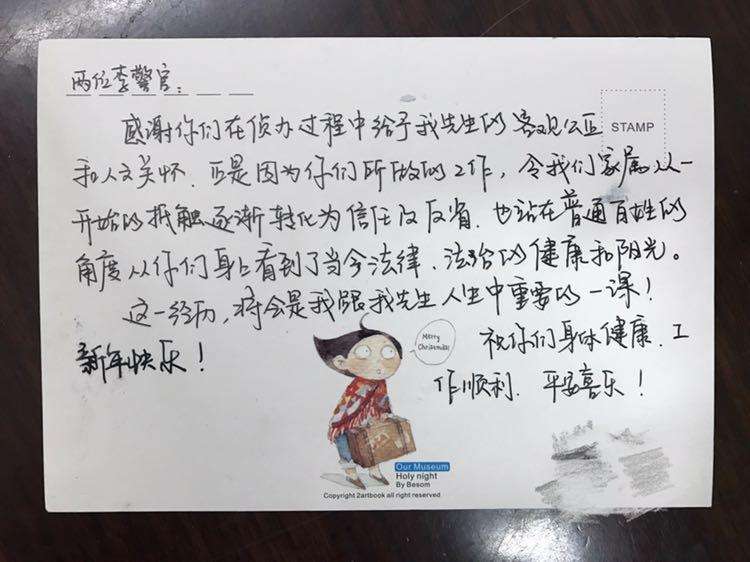 两位李警官：
感谢你们在侦办过程中给予我先生的客观公正
STAMP
和人文关怀．正是因为你们所做的工作，令我们家属从一
开始的抵触逐渐转化为信任及反省．也站在普通百姓的
角度从你们身上看到了当今法律、法治的健康和阳光。
这一经历，将会是我跟我先生人生中重要的一课！
祝你们身体健康．工
作顺利．平安喜乐！
新年快乐！
Merry
Christmas!
Our Museum
Holy night
By Besom
Copyright 2artbook all right reserved